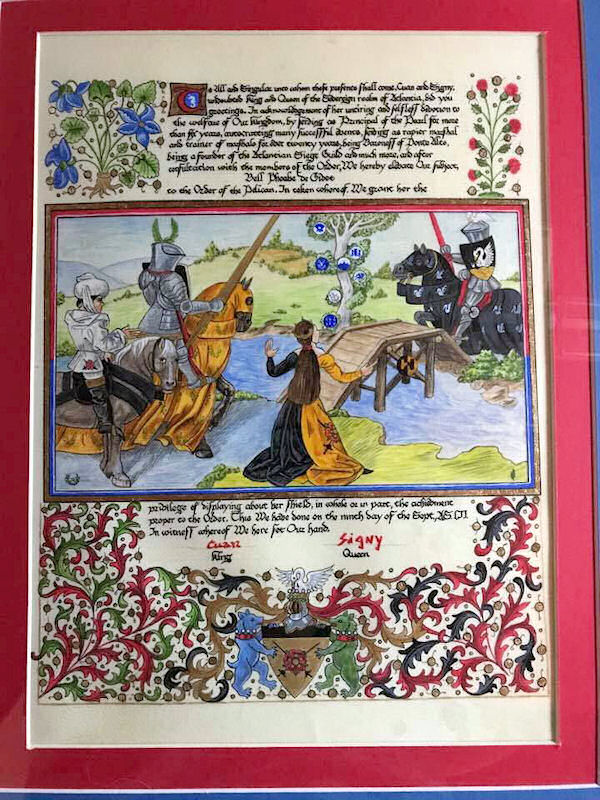 To All and Singular unto whom these presents shall come, Cuan and Signy,
undoubted King and Queen of the Sovereign realm of Atlantia, bid you
greetings. In acknowledgement of her untiring and selfless devotion to
the welfare of Our Kingdom, by serving as Principal of the Pearl for more
than six years, autocratting many successful events, serving as rapier marshal
and trainer of marshals for over twenty years, being Baroness of Ponte Alto,
being a founder of the Atlantian Siege Guild and much more, and after
consultation with the members of the Order, We hereby elevate Our subject,
Bell Phoebe de
to the Order of the Pelican. In token whereof, We grant her the
privilege of displaying about her shield, in whole or in part, the achievment
proper to the Order. This We have done on the ninth day of the Sept, A.S.
In witness whereof We here set Our hand.
Cuan Signy
King Queen